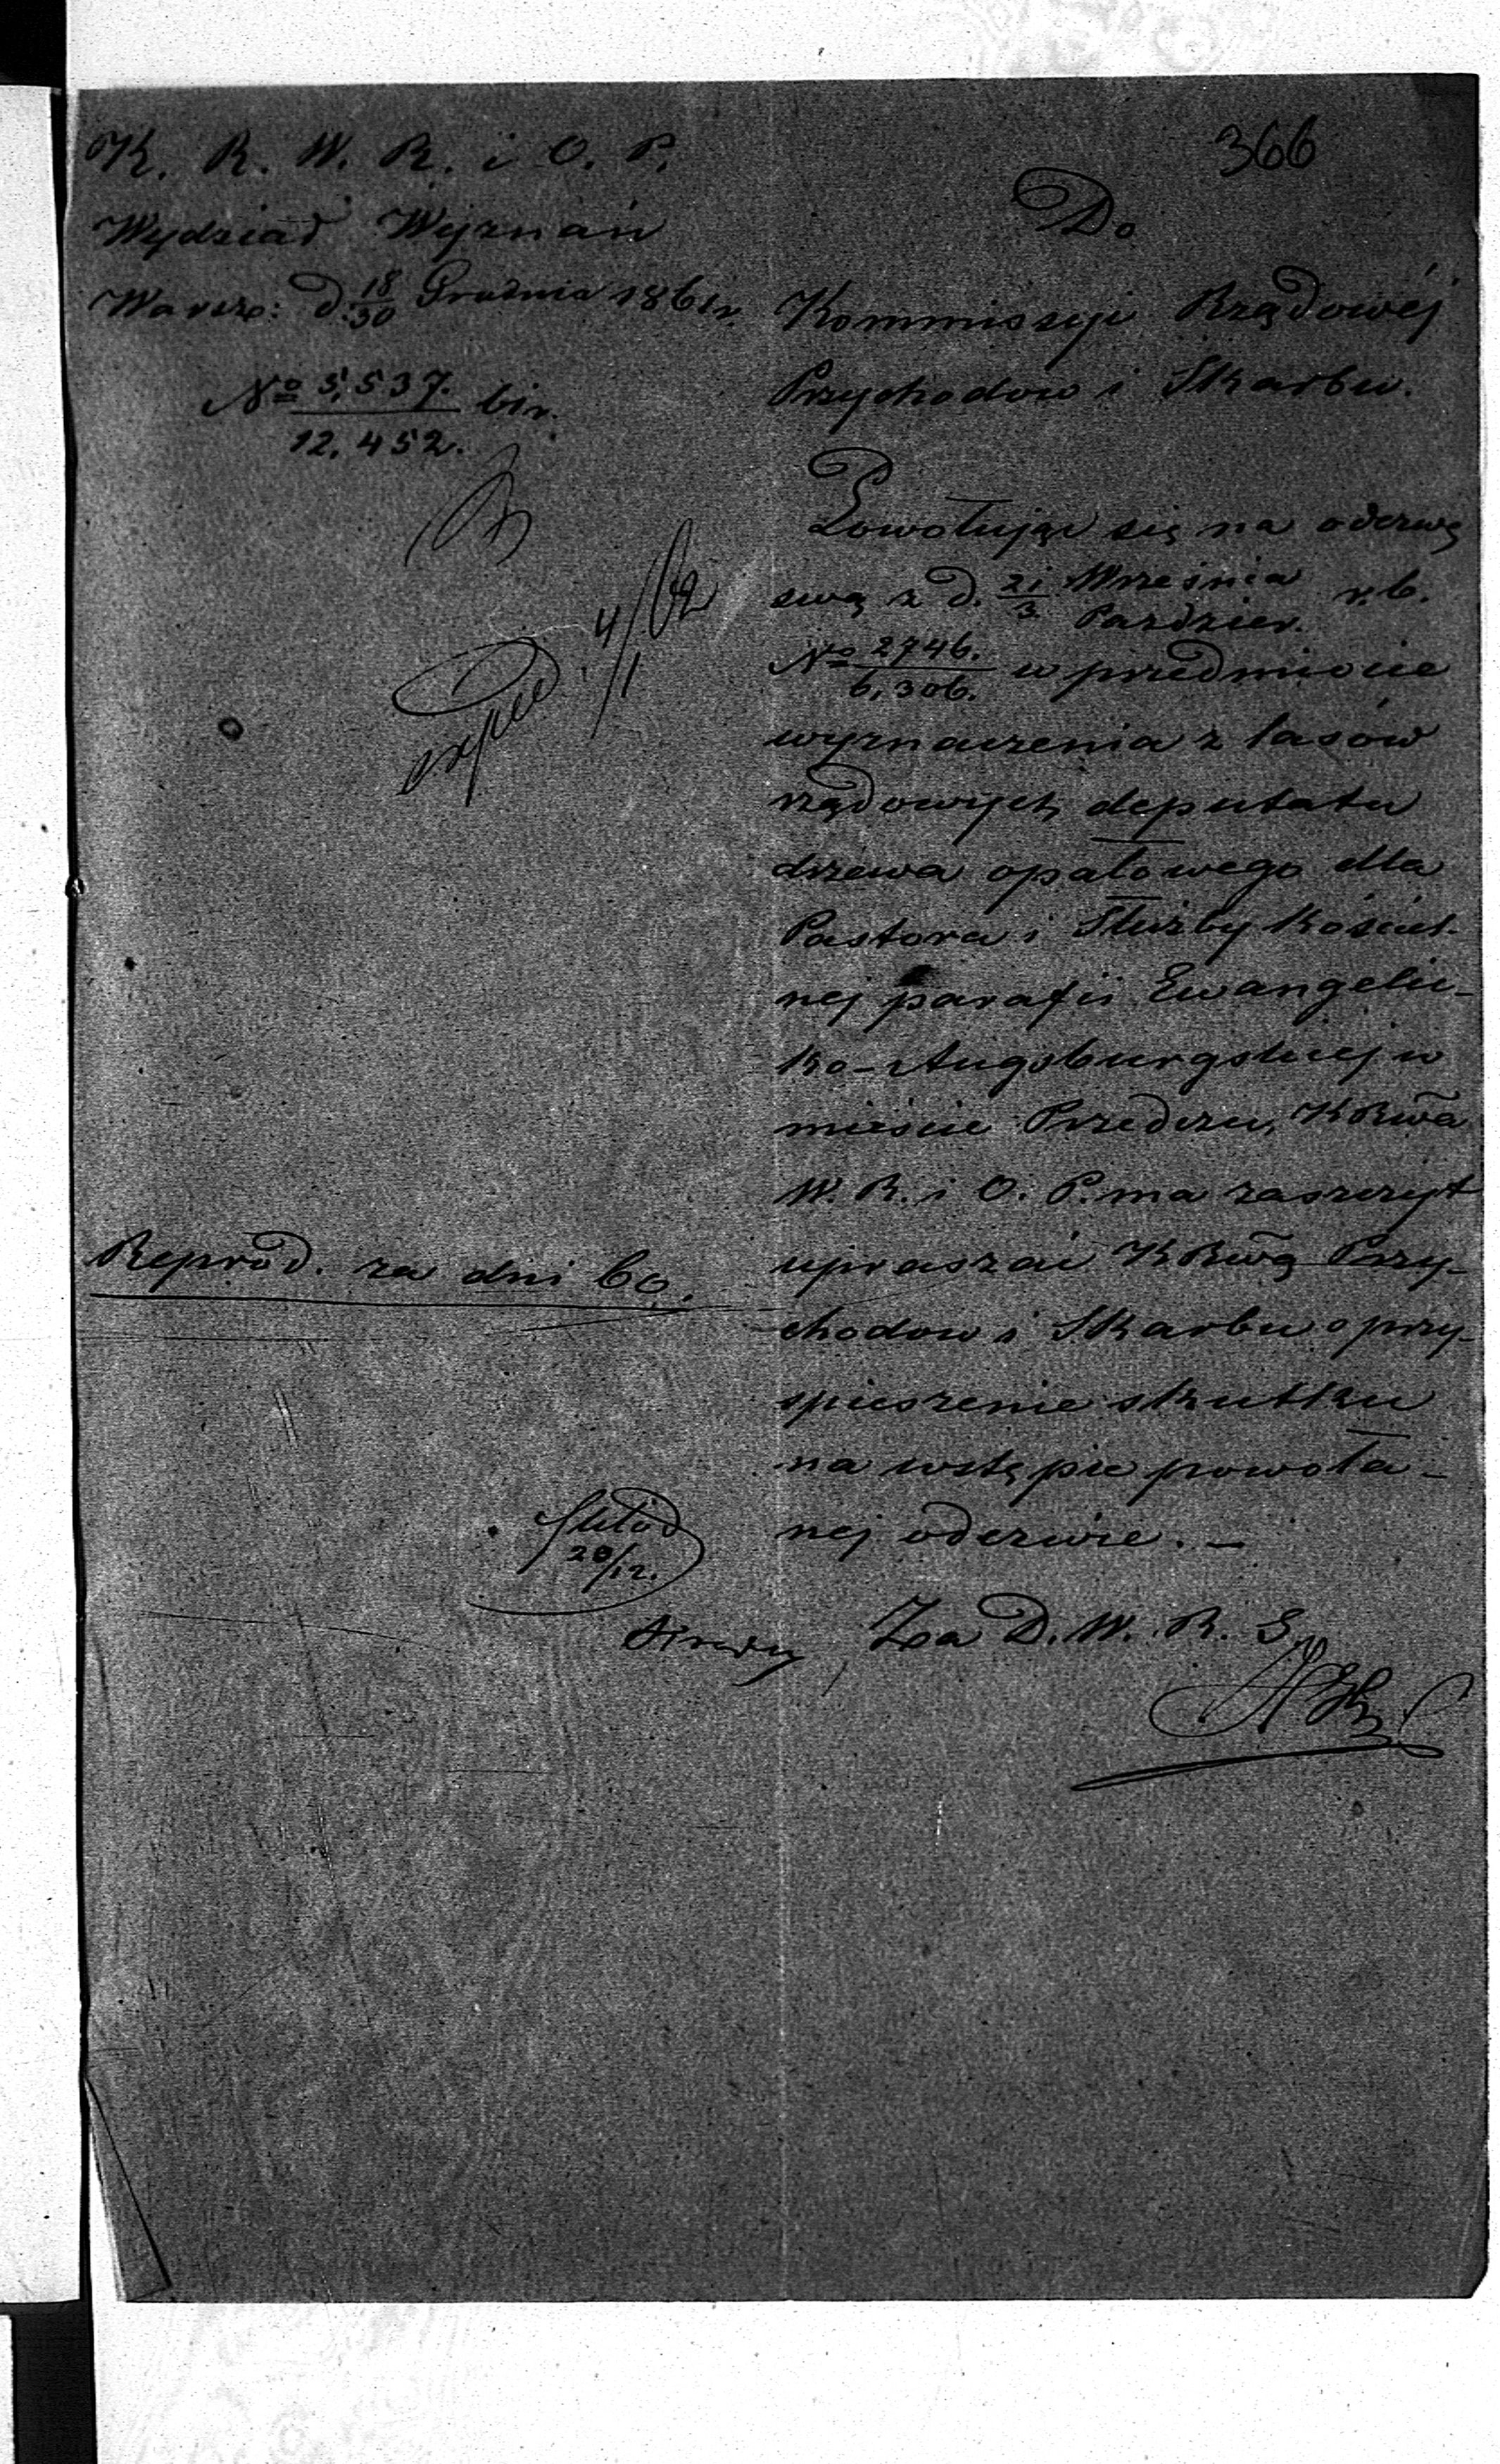 366
K. R. W. R. i O. P.
Wydział Wyznań
Warsz: d. 18/30 Grudnia 1861 r.
No 5,537./12,452. bir.
exped: 4/1/62
Do
Kommissyi Rządowéj
Przychodow i Skarbu.
Powołując się na odezwę
swą z d. 21 Września/3 Paździer. r. b.
No 2746./6,306. w przedmiocie
wyznaczenia z lasów
rządowych deputatu
drzewa opałowego dla
Pastora i Służby Kościel-
nej parafii Ewangelic-
ko-Augsburgskiej w
mieście Przedczu, KRwa
W. R. i O. P. ma zaszczyt
upraszać KRwą Przy-
chodow i Skarbu o przy-
spieszenie skutku
na wstępie powoła-
nej odezwie. —
Reprod. za dni 60.
20/12.
Za D. W. R. S.